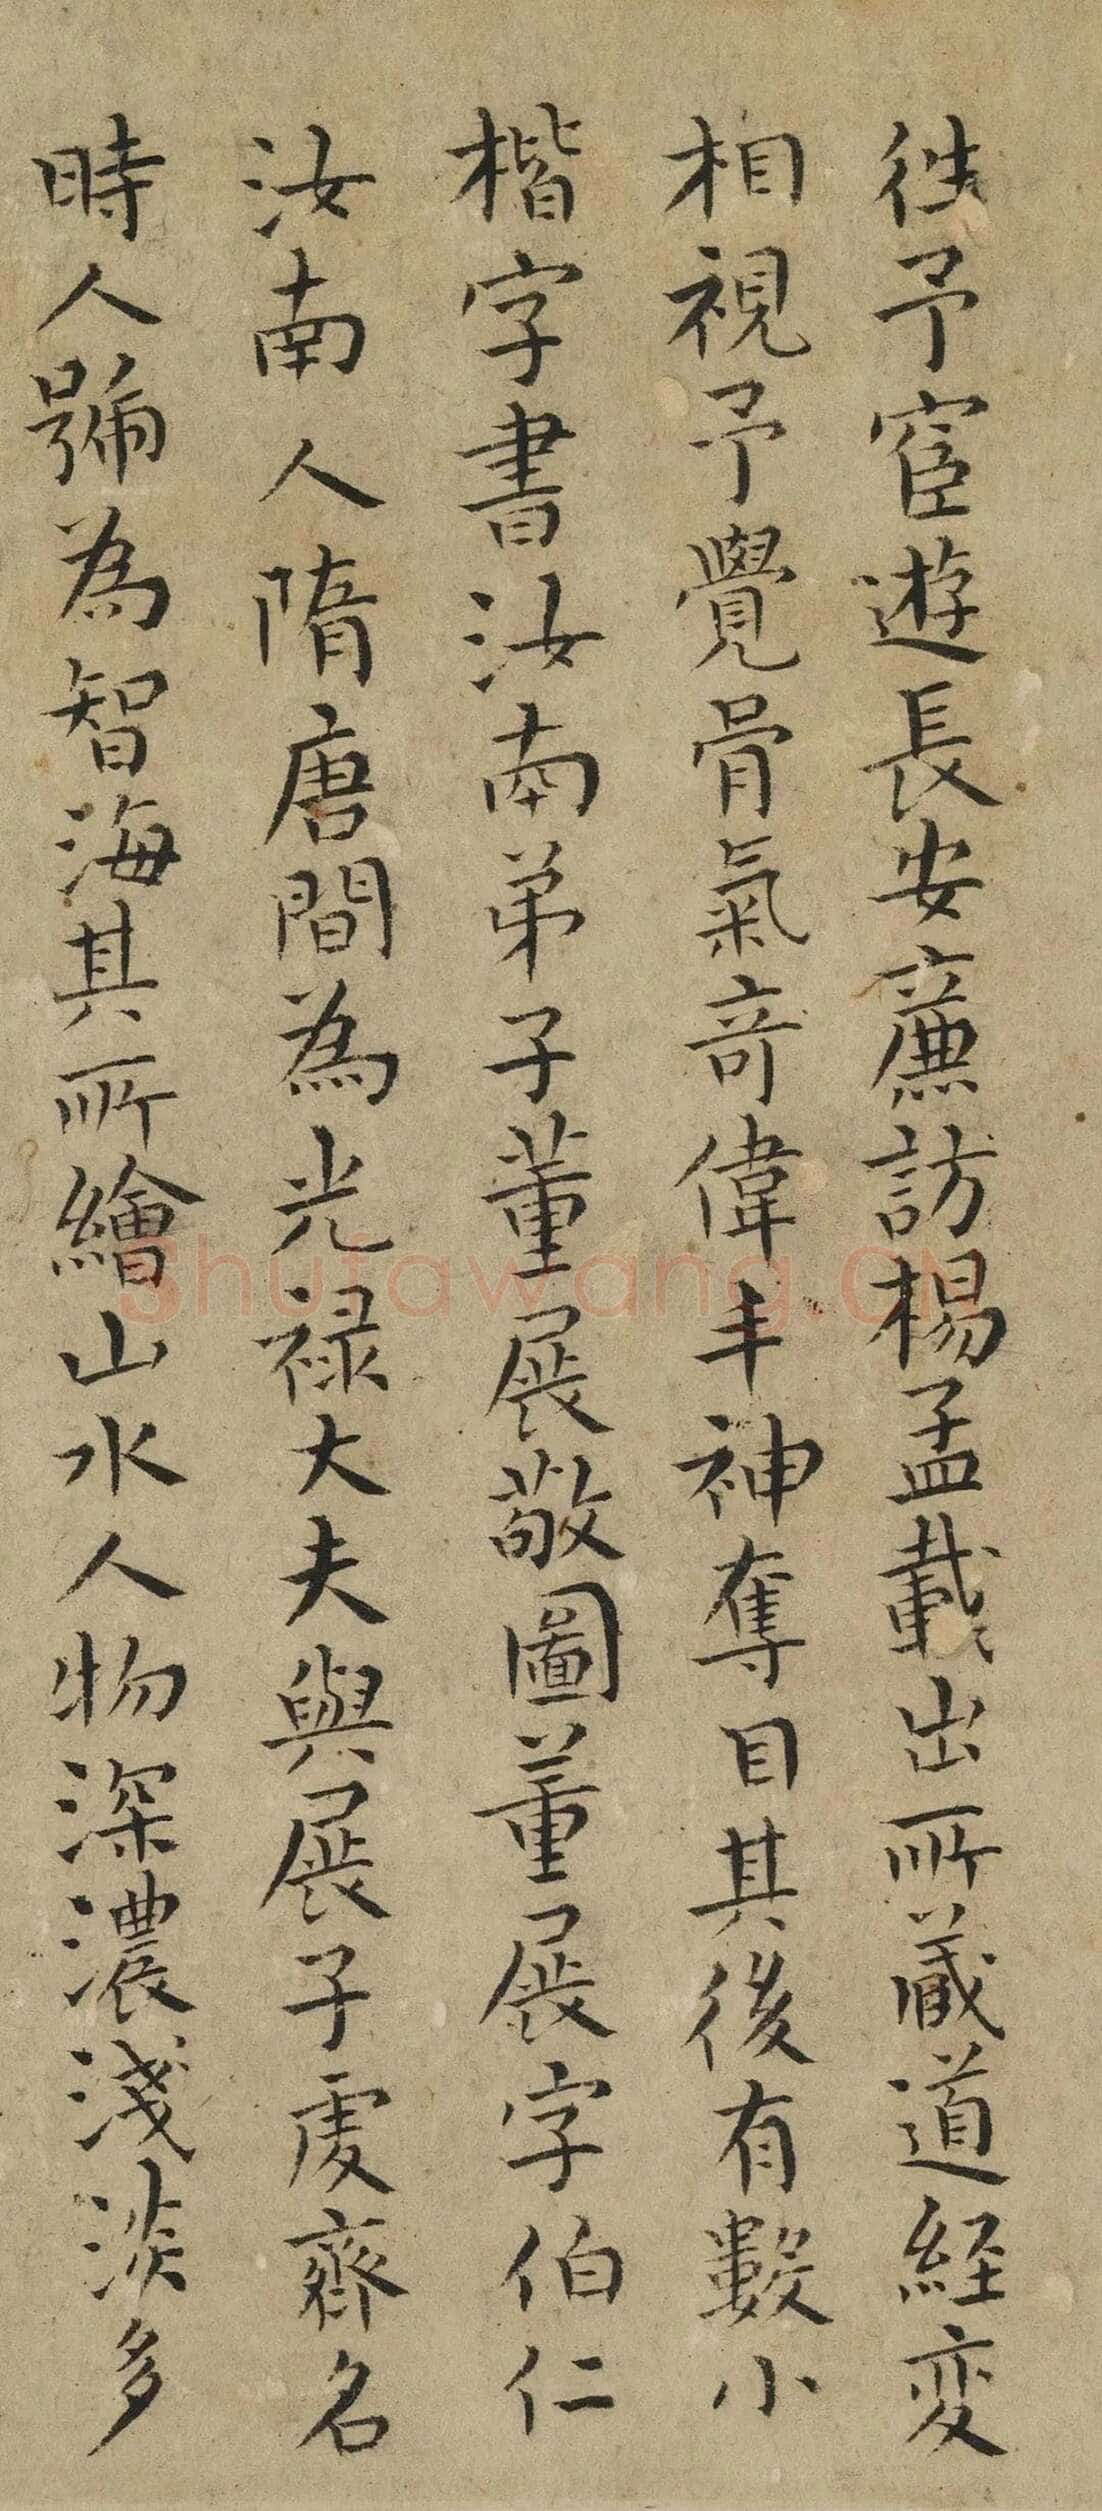 徃予宦遊長安亷訪楊孟載出所蔵道経変
相視予覺骨氣竒偉丰神奪目其後有數小
楷字書汝南弟子董展敬圖董展字伯仁
汝南人隋唐間為光禄大夫與展子虔齊名
時人號為智海其所繪山水人物深濃淺淡多
Shufawang.CN